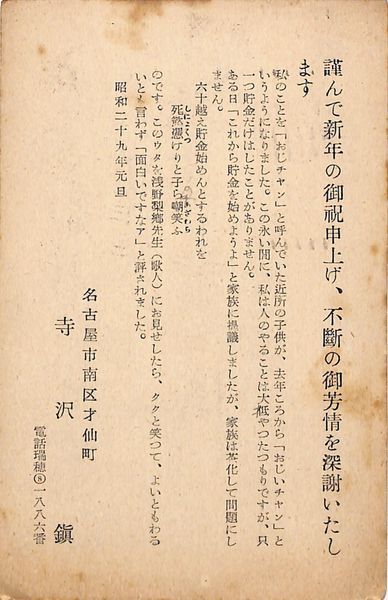 謹んで新年の御祝申上げ、不斷の御芳情を深謝いたし
ます
私のことを「おじチャン」と呼んでいた近所の子供が、去年ころから「おじいチャン」と
いうようになりました。この永い間に、私は人のやることは大概やつたつもりですが、只
一つ貯金だけはしたことがありません。
ある日「これから貯金を始めようよ」と家族に提議しましたが、家族は茶化して問題にし
ません。
六十越え貯金始めんとするわれを
死慾慝けりと子ら嘲笑ふ
のです。このウタを浅野梨郷先生（歌人）にお見せしたら、ククと笑つて、よいともわる
いとも言わず「面白いですなア」と評されました。
昭和二十九年元旦
名古屋市南区才仙町
寺沢 鎭
電話瑞穂⑧一八八六番